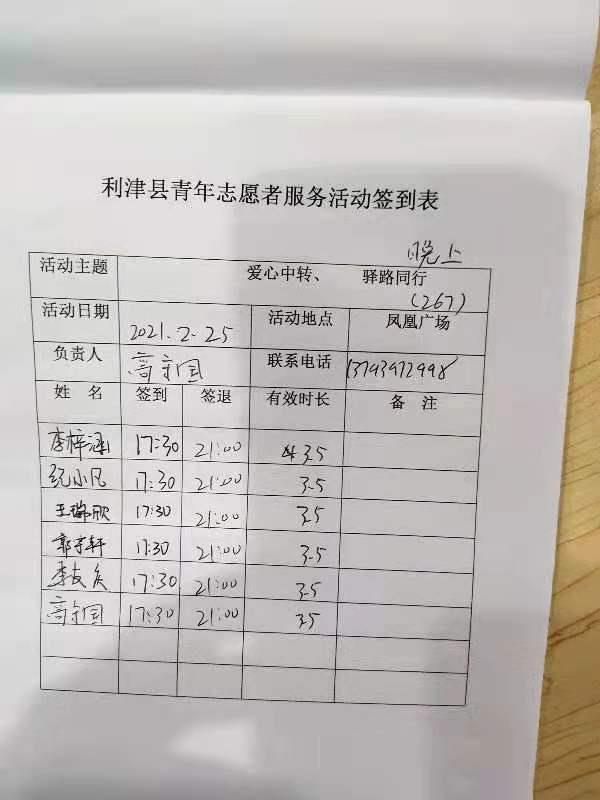 利津县青年志愿者服务活动签到表
晚上
活动主题 爱心中转、 驿路同行
(267)
活动日期 2021.2.25 活动地点 凤凰广场
负责人 高守国 联系电话 13793972998
姓 名 签到 签退 有效时长 备 注
李梓涵 17:30 21:00 3.5
纪小凡 17:30 21:00 3.5
王瑞欣 17:30 21:00 3.5
郭宇轩 17:30 21:00 3.5
李友 17:30 21:00 3.5
高守国 17:30 21:00 3.5